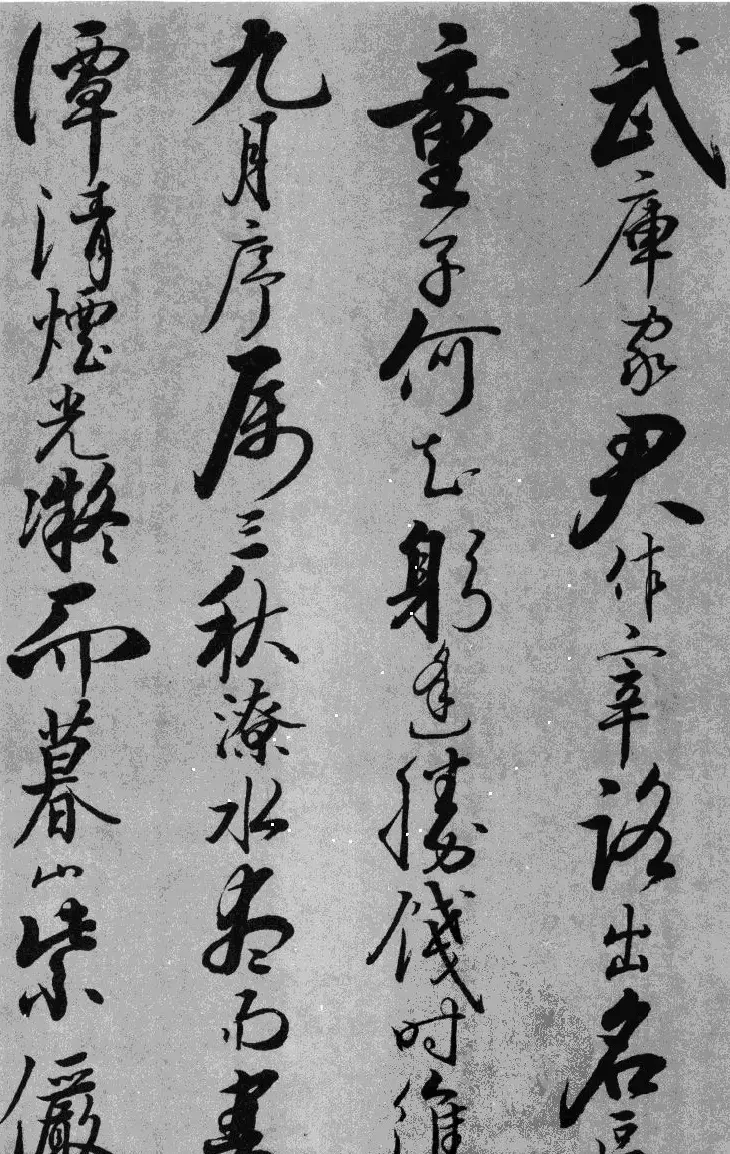 武庫家君作宰路出名區
童子何知躬逢勝餞时維
九月序属三秋潦水盡而寒
潭清煙光凝而暮山紫儼